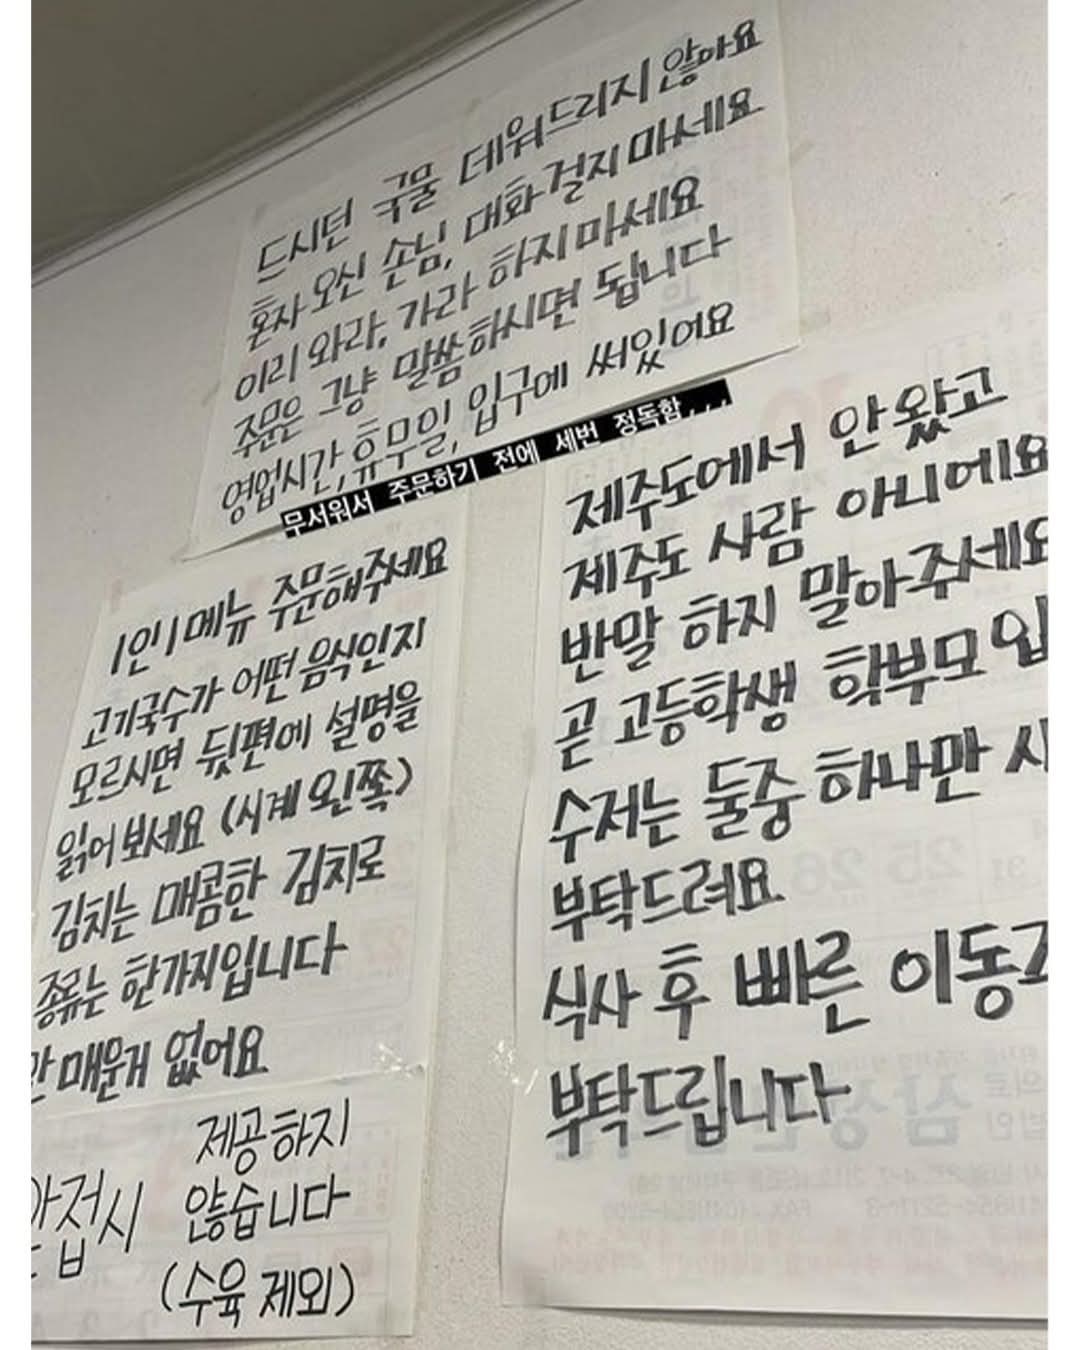 드시던 국물 데워드리지 않아요
혼자 오신 손님, 대화 걸지 마세요
이리 와라, 가라 하지마세요
주문은 그냥 말씀하시면 됩니다
영업시간, 휴무일, 입구에 써있어요
무서워서 주문하기 전에 세번 정독함,,,
1인 1메뉴 주문해주세요
고기국수가 어떤 음식인지
모르시면 뒷편에 설명을
읽어 보세요 (시계 왼쪽)
김치는 매콤한 김치로
종류는 한가지입니다
안 매운게 없어요
앞접시 제공하지
않습니다
(수육 제외)
제주도에서 안 왔고
제주도 사람 아니에요
반말 하지 말아주세요
곧 고등학생 학부모 입
수저는 둘중 하나만 사
부탁드려요
식사 후 빠른 이동
부탁드립니다